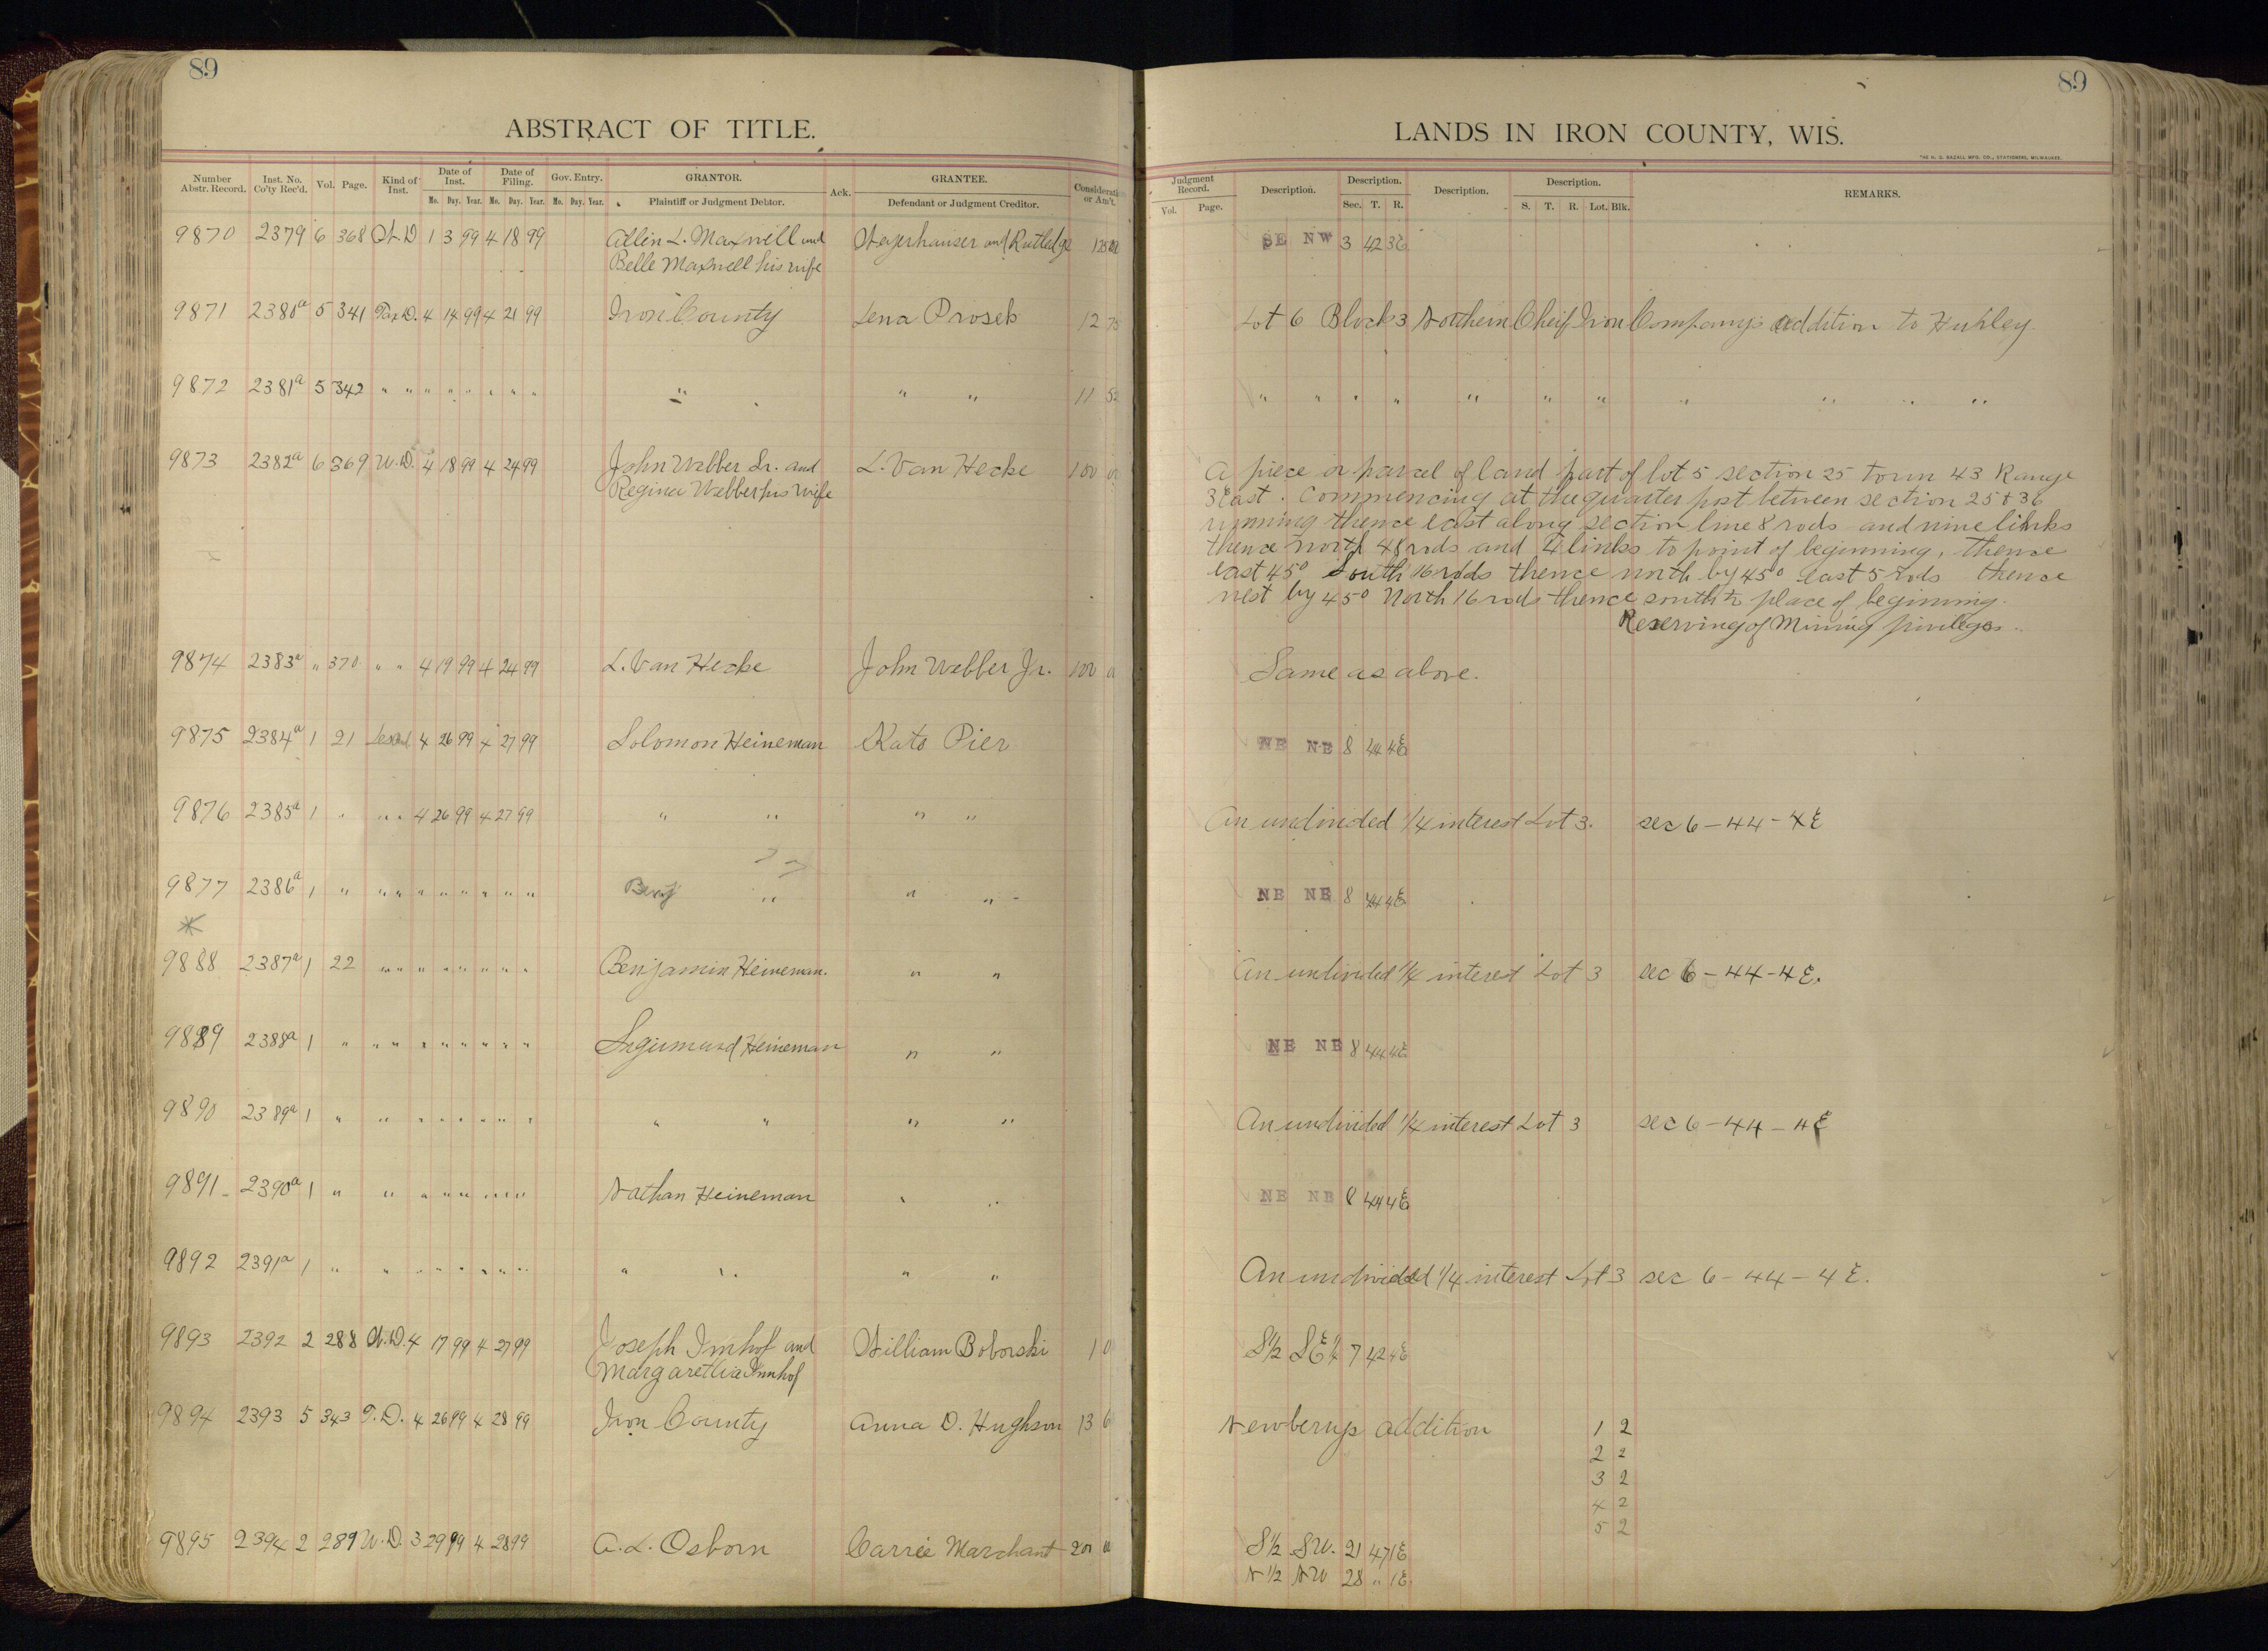 89
ABSTRACT OF TITLE.
Number Abstr. Record. Inst. No. Co'ty Rec'd. Vol. Page. Kind of Inst. Date of Inst. Date of Filing. Gov. Entry. GRANTOR. Ack. GRANTEE. Consideration or Am't.
Mo. Day. Year. Mo. Day. Year. Mo. Day. Year. Plaintiff or Judgment Debtor. Defendant or Judgment Creditor.
9870 2379 6 368 1 3 99 4 18 99 Allen L. Maxwell and Weyerhauser and Rutledge
Belle Maxwell his wife
9871 2380a 5 341 Tax D. 4 14 99 4 21 99 Iron County Lena Prosek 12 75
9872 2381a 5 342 " " " " " " " " " " " 11 52
9873 2382a 6 369 W.D. 4 18 99 4 24 99 John Webber Sr. and L. Van Hecke 100
Regina Webber his wife
9874 2383a " 370 " " 4 19 99 4 24 99 L. Van Hecke John Webber Jr. 100
9875 2384a 1 21 4 26 99 4 27 99 Solomon Heineman Kate Pier
9876 2385a 1 " " " 4 26 99 4 27 99 " " " "
9877 2386a 1 " " " " " " " " " Benj " " "
*
9888 2387a 1 22 " " " " " " " " Benjamin Heineman. " "
9889 2388a 1 " " " " " " " " " Sigismund Heineman " "
9890 2389a 1 " " " " " " " " " " " "
9891 2390a 1 " " " " " " " " Nathan Heineman " "
9892 2391a 1 " " " " " " " " " " " "
9893 2392 2 288 W.D. 4 17 99 4 27 99 Joseph Imhof and William Boborski 1
Margarethia Imhof
9894 2393 5 343 T.D. 4 26 99 4 28 99 Iron County Anna D. Hughson 13
9895 2394 2 289 W.D. 3 29 99 4 28 99 A. L. Osborn Carrie Marchant 200
89
LANDS IN IRON COUNTY, WIS.
Judgment Record. Description. Description. Description. Description. REMARKS.
Vol. Page. Sec. T. R. S. T. R. Lot. Blk.
SE NW 3 42 3E
Lot 6 Block 3 Northern Cheif Iron Company's addition to Hurley
" " " " " " " " " " "
A piece or parcel of land part of lot 5 section 25 town 43 Range
3 East. Commencing at the quarter post between section 25 & 36
running thence east along section line 8 rods and nine links
thence north 48 rods and 4 links to point of beginning, thence
east 45° South 16 rods thence north by 45° east 5 rods thence
west by 45° North 16 rods thence south to place of beginning.
Reserving of Mining privileges.
Same as above.
NE NE 8 44 4E
An undivided 1/4 interest Lot 3. sec 6 - 44 - 4E
NE NE 8 44 4E
An undivided 1/4 interest Lot 3 sec 6 - 44 - 4E.
NE NE 8 44 4E
An undivided 1/4 interest Lot 3 sec 6 - 44 - 4E
NE NE 8 44 4E
An undivided 1/4 interest Lot 3 sec 6 - 44 - 4E.
S1/2 SE1/4 7 42 4E
Newberrys addition 1 2
2 2
3 2
4 2
5 2
S 1/2 SW. 21 47 1E
N 1/2 NW 28 " 1E